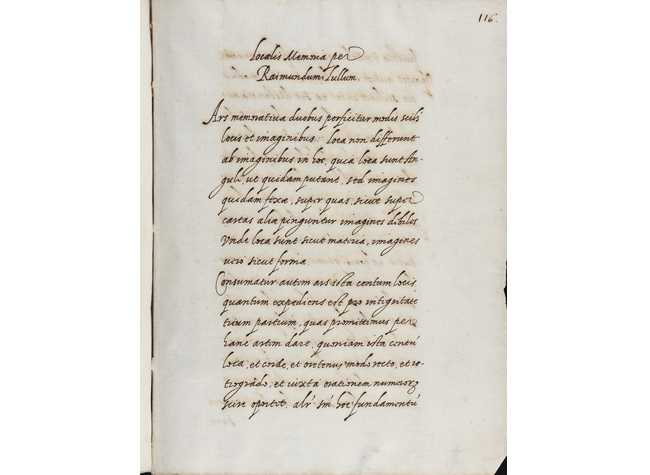 116.
Localis Memoria per
Raimundum Lullum.
Ars memorativa duobus perficitur modis scilt
locis et imaginibus: loca non differunt
ab imaginibus in hoc, quia loca sunt An-
guli, ut quidam putant, sed imagines
quidam fixae, super quas, sicut super
cartas aliae pinguntur imagines dibiles
Unde loca sunt sicut materia, imagines
vero sicut forma
Consumatur autem ars ista centum locis
quantum expediens est pro integritate
trium partium, quas promittimus per
hanc artem dare, quoniam ista centū
loca, et corde, et oretenus modo recto, et re-
trogrado, et iuxta orationem numeror
scire oportet, alr sm hoc fundamentū